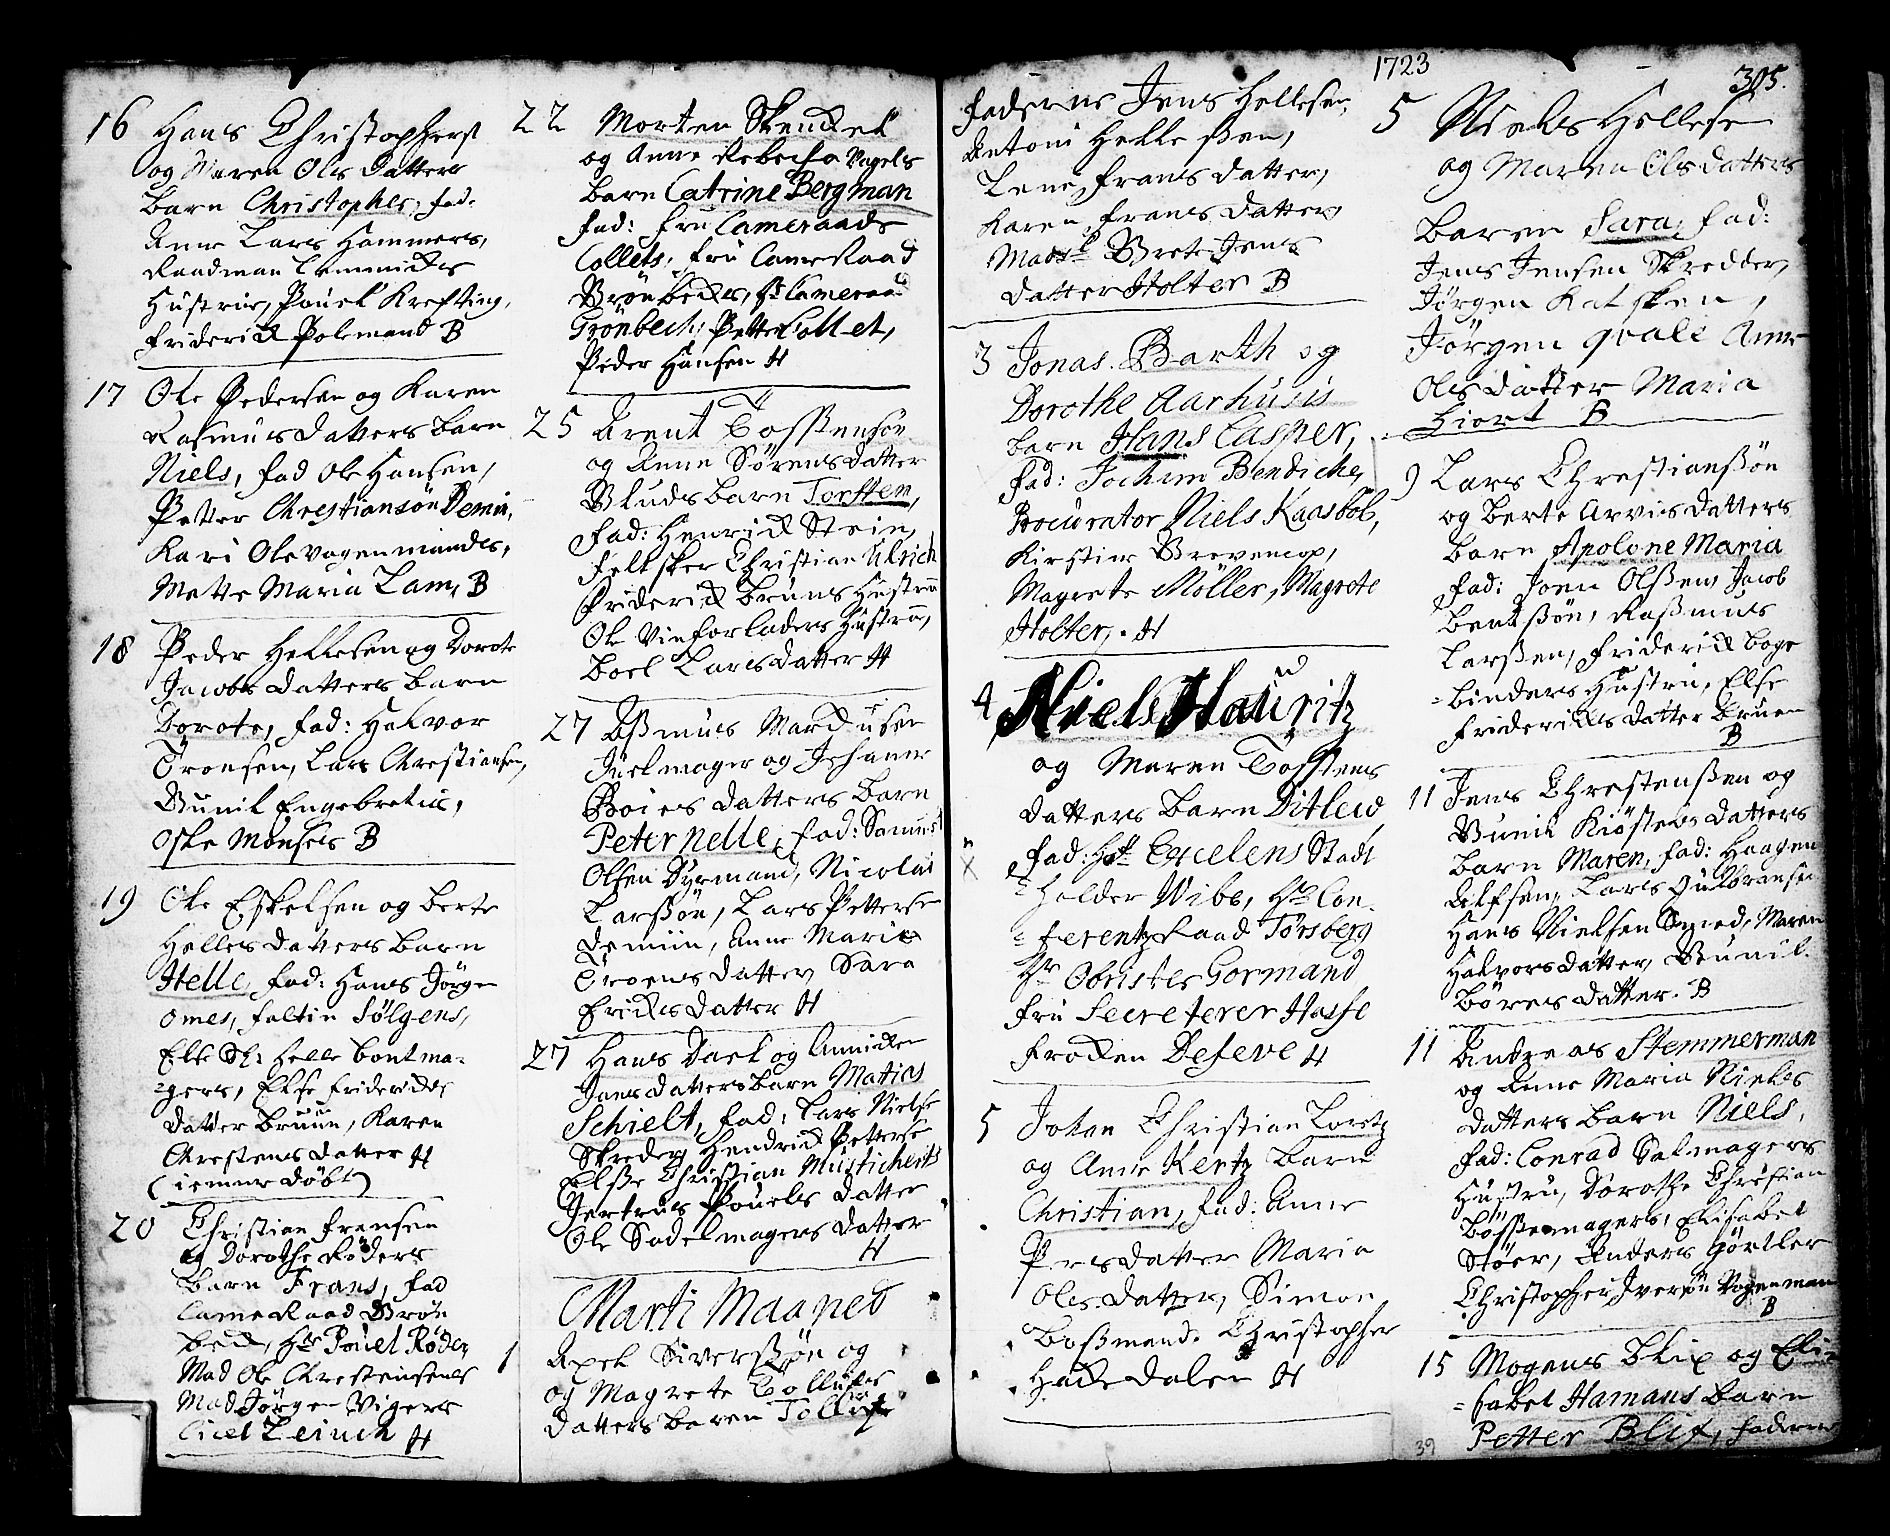 16 Hans Christophers
og Maren Ols datters
barn Christopher, fad:
Anne Lars Hammers,
Raadman Lemmickes
Hustrue, Pouel Krefting,
Friderick Polemand B
17 Ole Pedersen og Karen
Rasmus datters barn
Niels, fad Ole Hansen,
Petter Chrestiansön Demin,
Kari Ole vogenmands,
Mette Maria Lam, B
18 Peder Hellesen og Dorote
Jacobs datters barn
Dorote, fad: Halvor
Tronsen, Lars Chrestiansen,
Gunil Engebretis,
Oske Monses B
19 Ole Eskelsen og berte
Helles datters barn
Helle, fad: Hans Jörgen
omes, faltin Sölgens,
Else Sl: Helle bontma-
=gers, Else Fridericks
datter bruun, Karen
Chrestens datter H
(iemme döbt)
20 Christian fransen
og Dorothe Röders
barn Frans, fad
Cameraad Grön
beck, Hr Pouel Röder
Mad Ole Chrestensens
Mad Jörgen Vigers
Ciel Leinch H
22 Morten Skenckel
og Anne Rebecka Vogels
barn Catrine Bergman
fad: fru Cameraads
Collets, fru Cameraad
Grönbeckes, Hr Cameraad
Grönbech, Petter Collet,
Peder Hansen H
25 Arent Tosssensön
og Anne Sörens datter
Bluds barn Torsten,
fad: Henrick Stein,
feltsker Christian Ulrich
Friderick bruns Hustru
Ole Vinforladers Hustru,
Boel Lars datter H
27 Asmus Mardusen
Juelmager og Johanne
Boies datters barn
Peter Nelle, fad: Samuel
Olsen Dyrmand, Nicolai
Larssön, Lars Pettersen
Demiin, Anne Marie
Troens datter, Sara
Ericks datter H
27 Hans Dael og Annicken
Jans datters barn Matias
Schielt, fad: Lars Nielse
Skreder, Hendrick Petterse
Else Christian Musticherts
Jertrus Pouels datter
Ole Sadelmagers datter
H
Marti Maaned
1 Axel Siverssön og
og Magrete Tolluks
datters baren Tolluf
1723
305.
faderne Jens Hellesen,
Antoni Hellessen,
Lene Frans datter,
Karen Frans datter,
Mads Brete Jens
datter Holter B
3 Jonas Barth og
Dorothe Aarhusis
barn Hans Casper,
fad: Jochim Bendiche,
Procurator Niels Kaasböl,
Kirstine Brovencop,
Magrete Möller, Magrete
Holter, H
4 Niels Hauritz
og Maren Tosstens
datters barn Ditlew
fad: Hs Excelens Stadt
=holder Wibe, Hr Con-
=ferentz Raad Torsberg
Hr Obrister Gormand
Fru Secreterer Hasse
Frocken Defeve H
5 Johan Christian Loretz
og Anne Kertz barn
Christian, fad: Anne
Pers datter Maria
Oles datter, Simon
Bossmand. Christopher
Hakedalen H
5 Niels Hellesen
og Maren Olsdatters
Baren Sara, fad:
Jens Jensen Skredder,
Jörgen Katsken,
Jörgen Qvale Anne
Olsdatter Maria
Hiort B
9 Lars Chrestianssön
og Berte Arvis datters
barn Apolone Maria
fad: Joen Olssen, Jacob
bentssön, Rasmus
Larssen, Friderick boge
=binders Hustru, Else
Fridericks datter bruen
B
11 Jens Chrestenssen og
Gunil Kiöstens datters
barn Maren, fad: Haagen
Alfsen, Lars Gulbransen
Hans Nielsen Smed, Maren
Halvors datter, Gunil.
Börres datter. B
11 Andreas Stemmerman
og Anne Maria Nieles
datters barn Niels,
fad: Conrad Salmagers
Hustru, Dorothe Christian
bössemagers, Elisabet
Stöer, Anders Görtler
Christopher Iversön Vogenman
B
15 Mogens Blix og Eli-
=sabet Hamans barn
Petter Blix, faderne
39